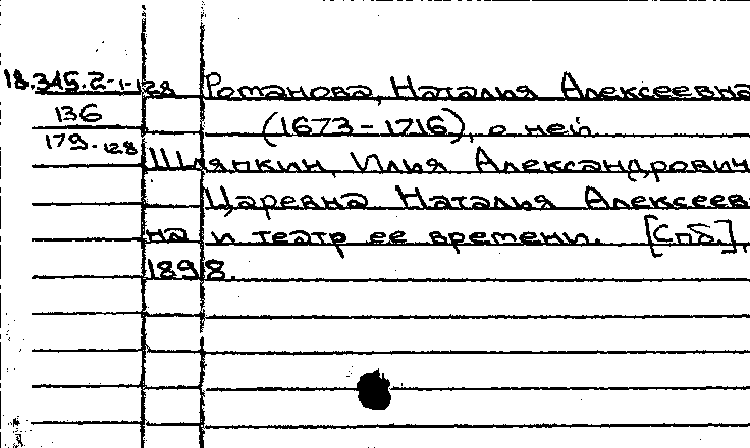 18.345.2-1-128 Романова, Наталья Алексеевна
136 (1673-1716), о ней.
179-128 Шляпкин, Илья Александрович
Царевна Наталья Алексеев-
на и театр ее времени. [Спб.],
1898.